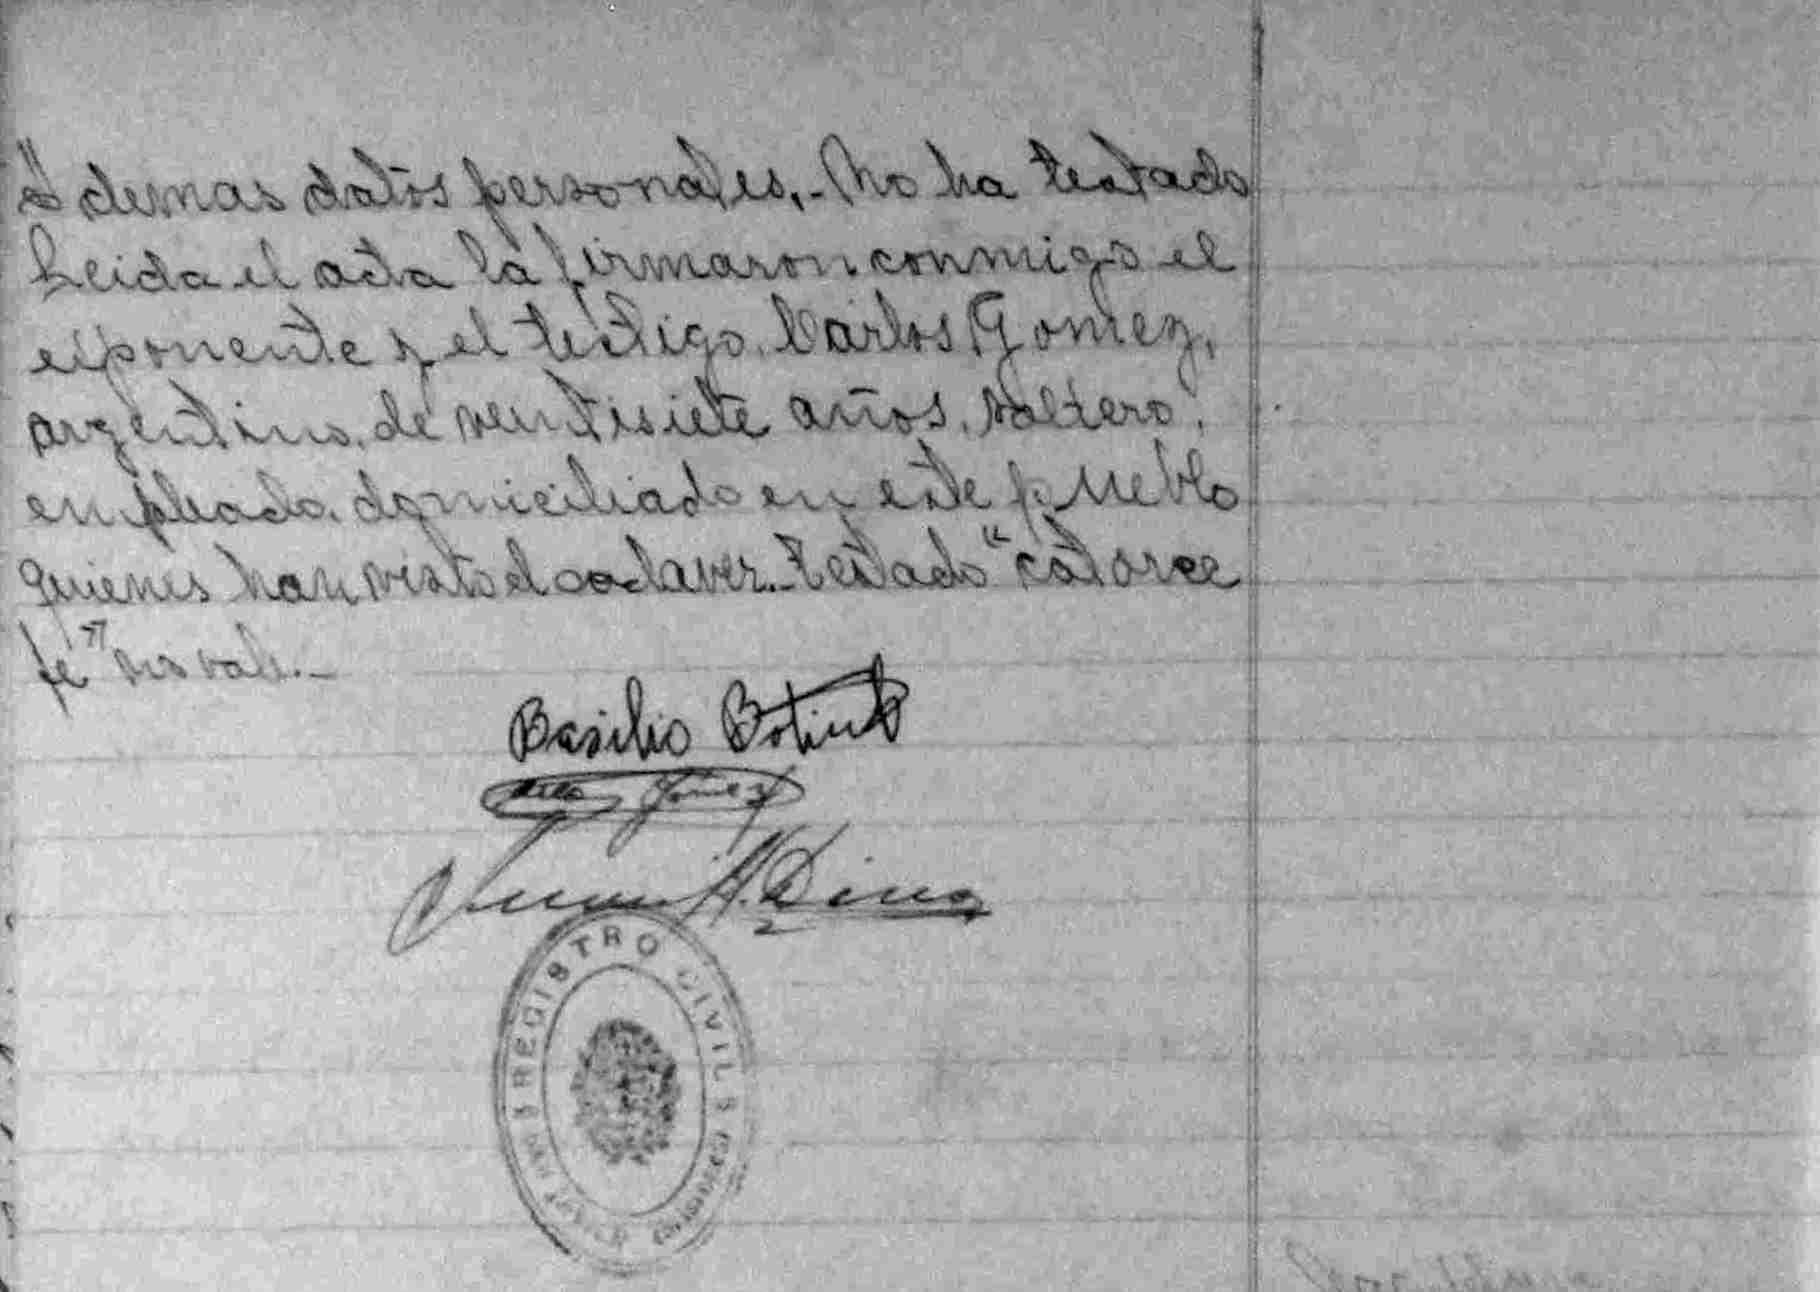 demas datos personales.- No ha testado
Leida el acta la firmaron conmigo el
exponente y el testigo. Carlos Gomez,
argentino, de ventisiete años, soltero,
empleado, domiciliado en este pueblo
quienes han visto el cadaver.- Testado "catorce
fe" no vale.-
Basilio
Gomez
Juan A.
REGISTRO CIVIL